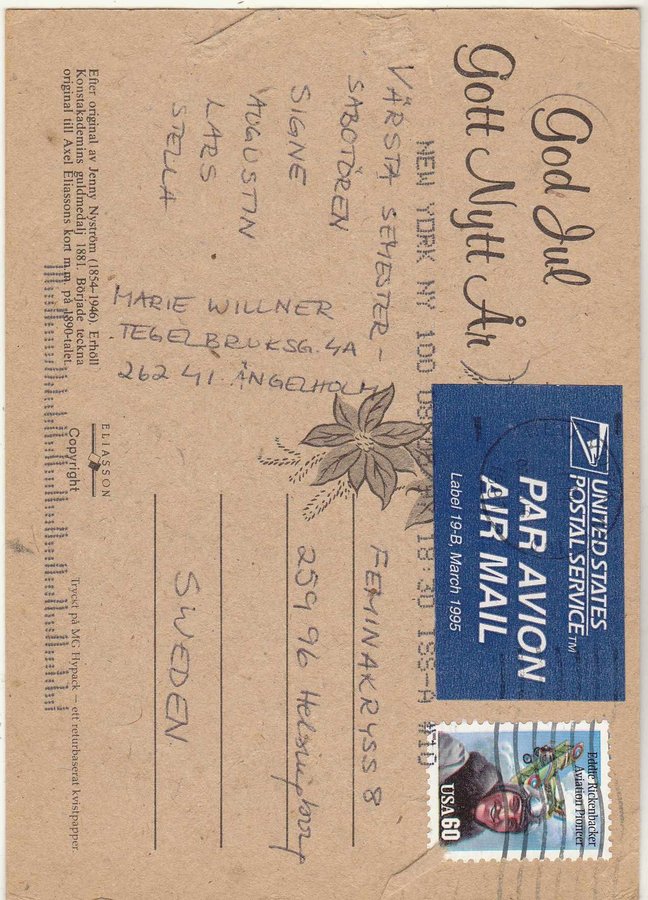 God Jul
Gott Nytt År
NEW YORK NY 100 18:30 ISS-A #10
VÄRSTA SEMESTER-
SABOTÖREN
SIGNE
AUGUSTIN
LARS
STELLA
MARIE WILLNER
TEGELBRUKSG. 4A
262 41 ÄNGELHOLM
Efter original av Jenny Nyström (1854-1946). Erhöll
Konstakademins guldmedalj 1881. Började teckna
original till Axel Eliassons kort m.m. på 1890-talet.
ELIASSON
Copyright
UNITED STATES
POSTAL SERVICE™
PAR AVION
AIR MAIL
Label 19-B, March 1995
Eddie Rickenbacker
Aviation Pioneer
USA60
FEMINAKRYSS 8
259 96 Helsingborg
SWEDEN
Tryckt på MG Hypack – ett returbaserat kvistpapper.